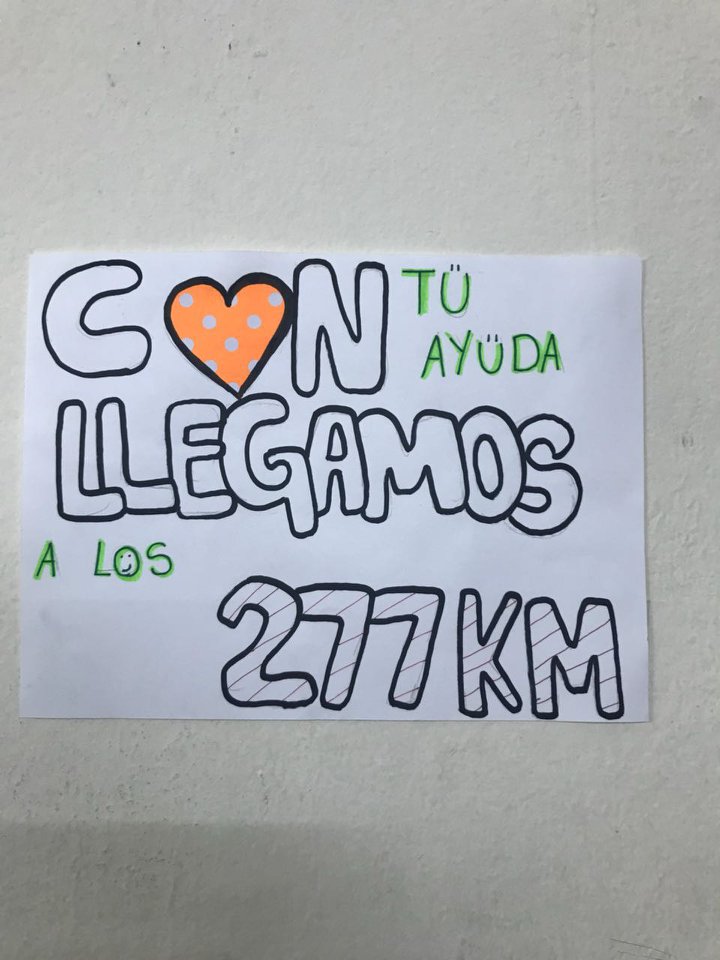 CON TÜ
AYÜDA
LLEGAMOS
A LOS
277KM